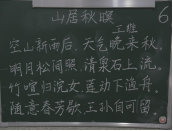 山居秋暝
6
王维
空山新雨后,天气晚来秋。
明月松间照,清泉石上流。
竹喧归浣女,莲动下渔舟。
随意春芳歇,王孙自可留。